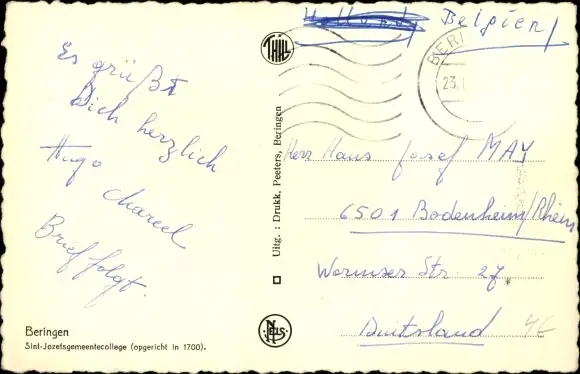 Belgien
THILL
BERI
23.
Es grüßt
Dich herzlich
Hugo
Marcel
Brief folgt.
Uitg. : Drukk. Peeters, Beringen
Herr Hans Josef MAY
6501 Bodenheim/Rhein
Wormser Str. 27
Duitsland
4€
NELS
Beringen
Sint-Jozefsgemeentecollege (opgericht in 1700).